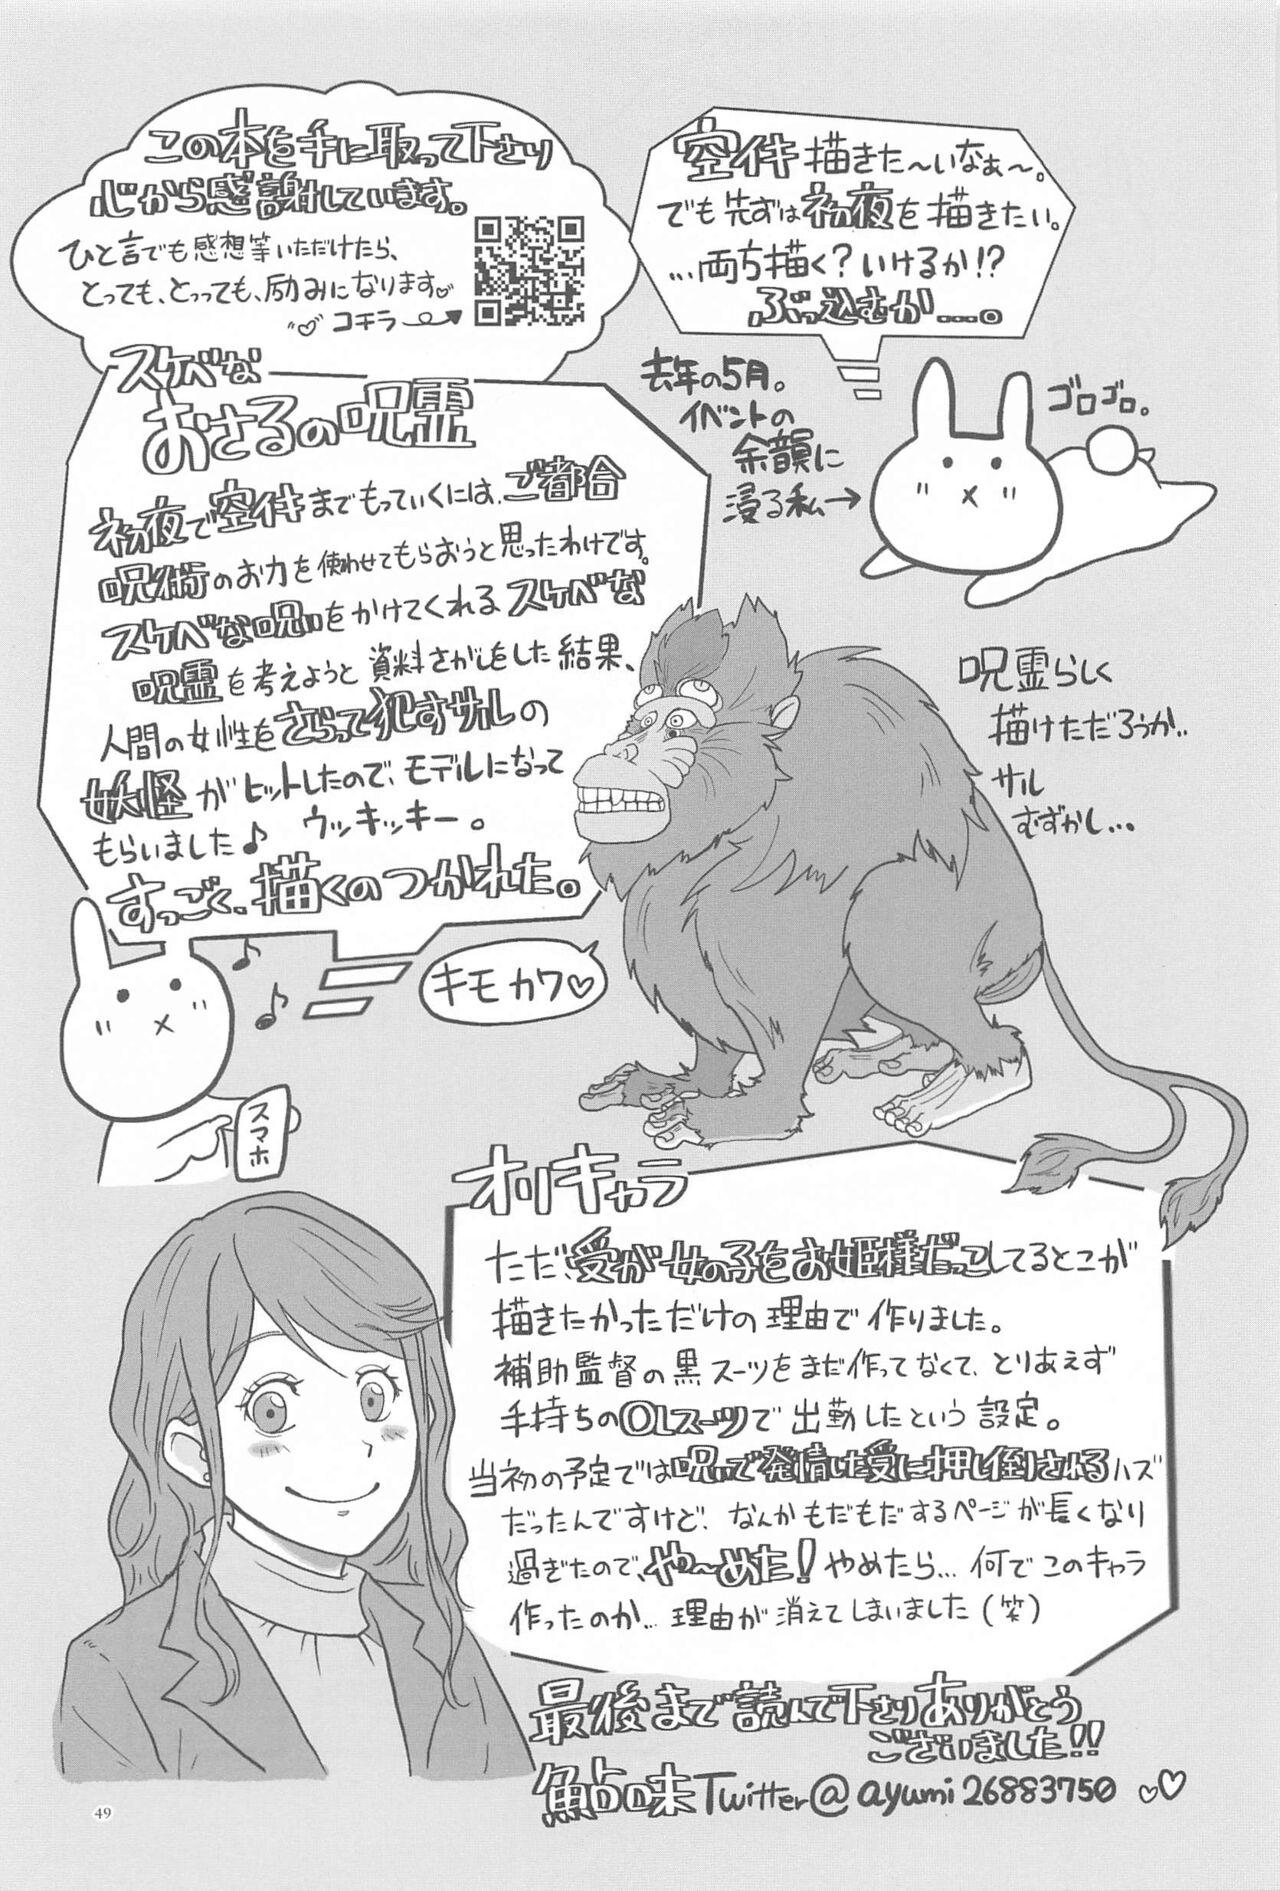 この本を手に取って下さり
心から感謝しています。
ひと言でも感想等いただけたら、
とっても、とっっても、励みになります
コチラ
空イキ描きた〜いなぁ〜。
でも先ずは初夜を描きたい。
…両ち描く?いけるか!?
ぶっ込むか……。
去年の5月。
イベントの
余韻に
浸る私→
ゴロゴロ。
スケベな
おさるの呪霊
初夜で空イキまでもっていくには、ご都合
呪術のお力を使わせてもらおうと思ったわけです。
スケベな呪いをかけてくれるスケベな
呪霊を考えようと資料さがしをした結果、
人間の女性をさらって犯すサルの
妖怪がヒットしたので、モデルになって
もらいました♪ ウッキッキー。
すっごく、描くのつかれた。
呪霊らしく
描けただろうか..
サル
むずかし...
キモカワ♡
スマホ
オリキャラ
ただ、受が女の子をお姫様だっこしてるとこが
描きたかっただけの理由で作りました。
補助監督の黒スーツをまだ作ってなくて、とりあえず
手持ちのOLスーツで出勤したという設定。
当初の予定では呪いで発情した受に押し倒されるハズ
だったんですけど、なんかもだもだするページが長くなり
過ぎたので、や〜めた!やめたら...何でこのキャラ
作ったのか...理由が消えてしまいました(笑)
最後まで読んで下さりありがとう
ございました!!
鮎味 Twitter@ayumi26883750
49